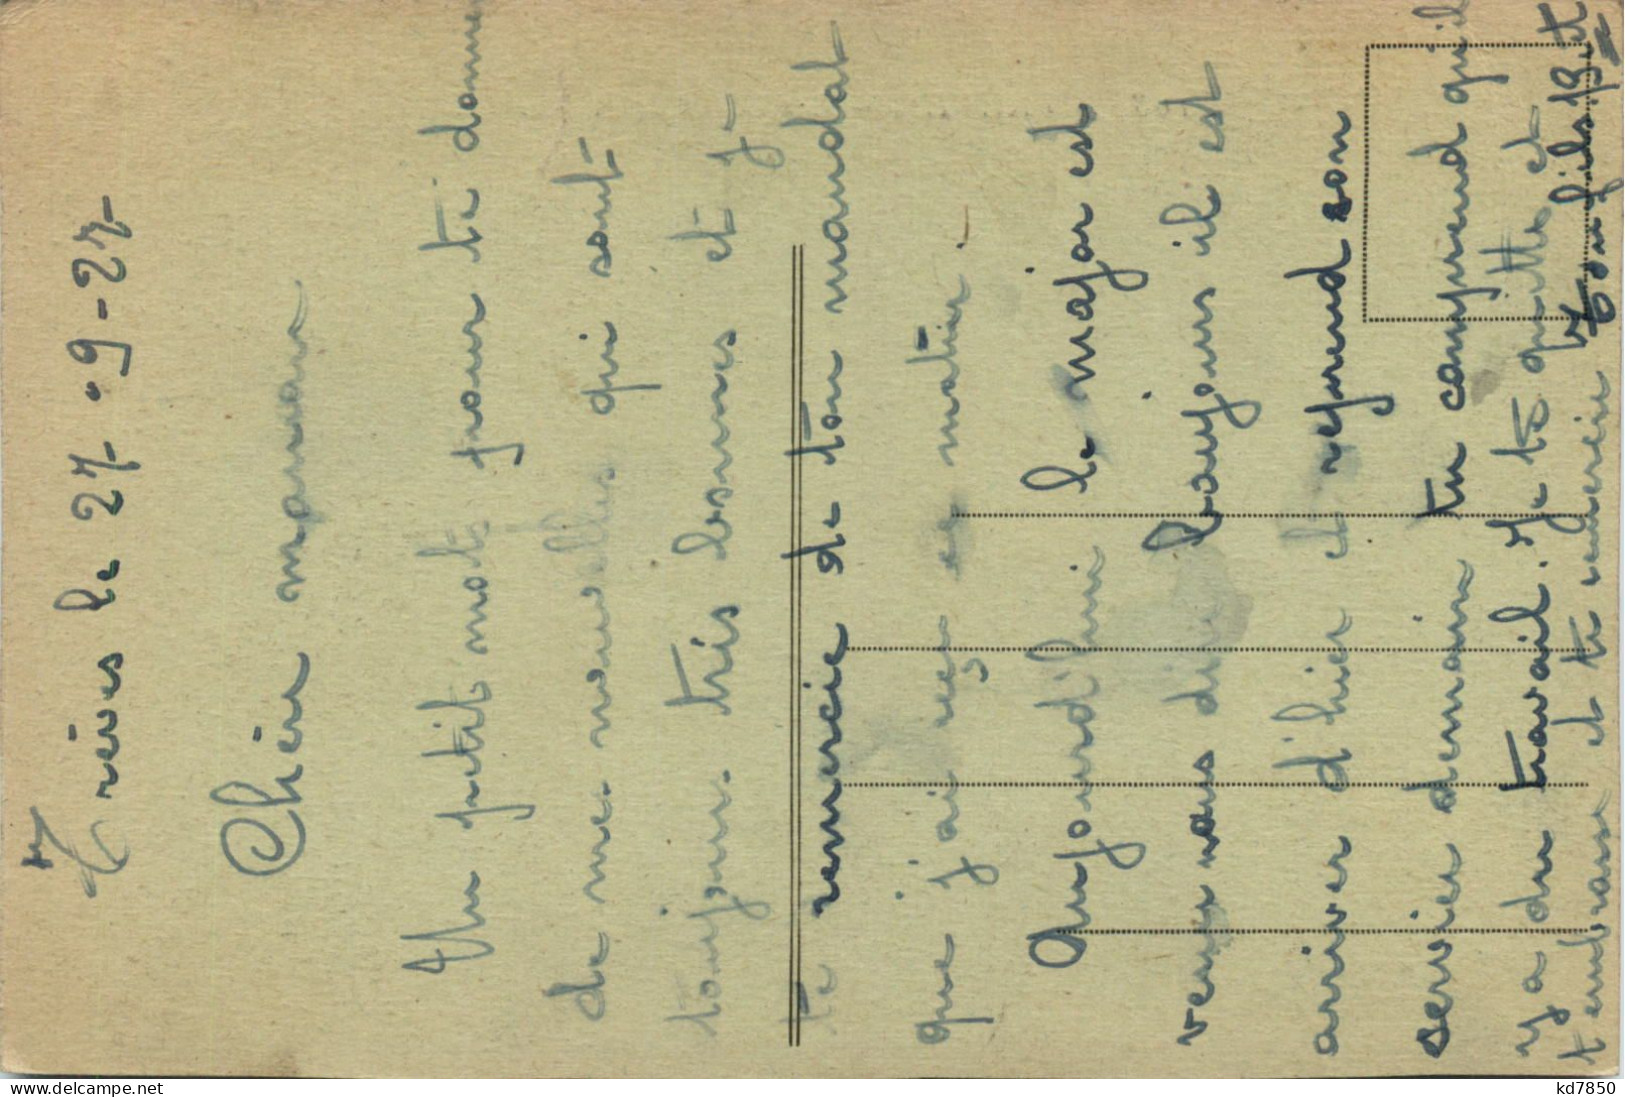 Trèves le 27-9-27-
Chèr maman
Un petit mot pour te donner
de me nouvelles qui sont
toujour très bonnes et j-
te remercie de ton mandat
que j'ai reçu ce matin.
Aujourd'hui le major est
venu nous dire bonjours il est
arriver d'hier et reprend son
servier demain tu comprend qu'il
y a du travail. Je te quitte et
t'embrasse et te remercie
Ton fils
www.delcampe.net
kd7850